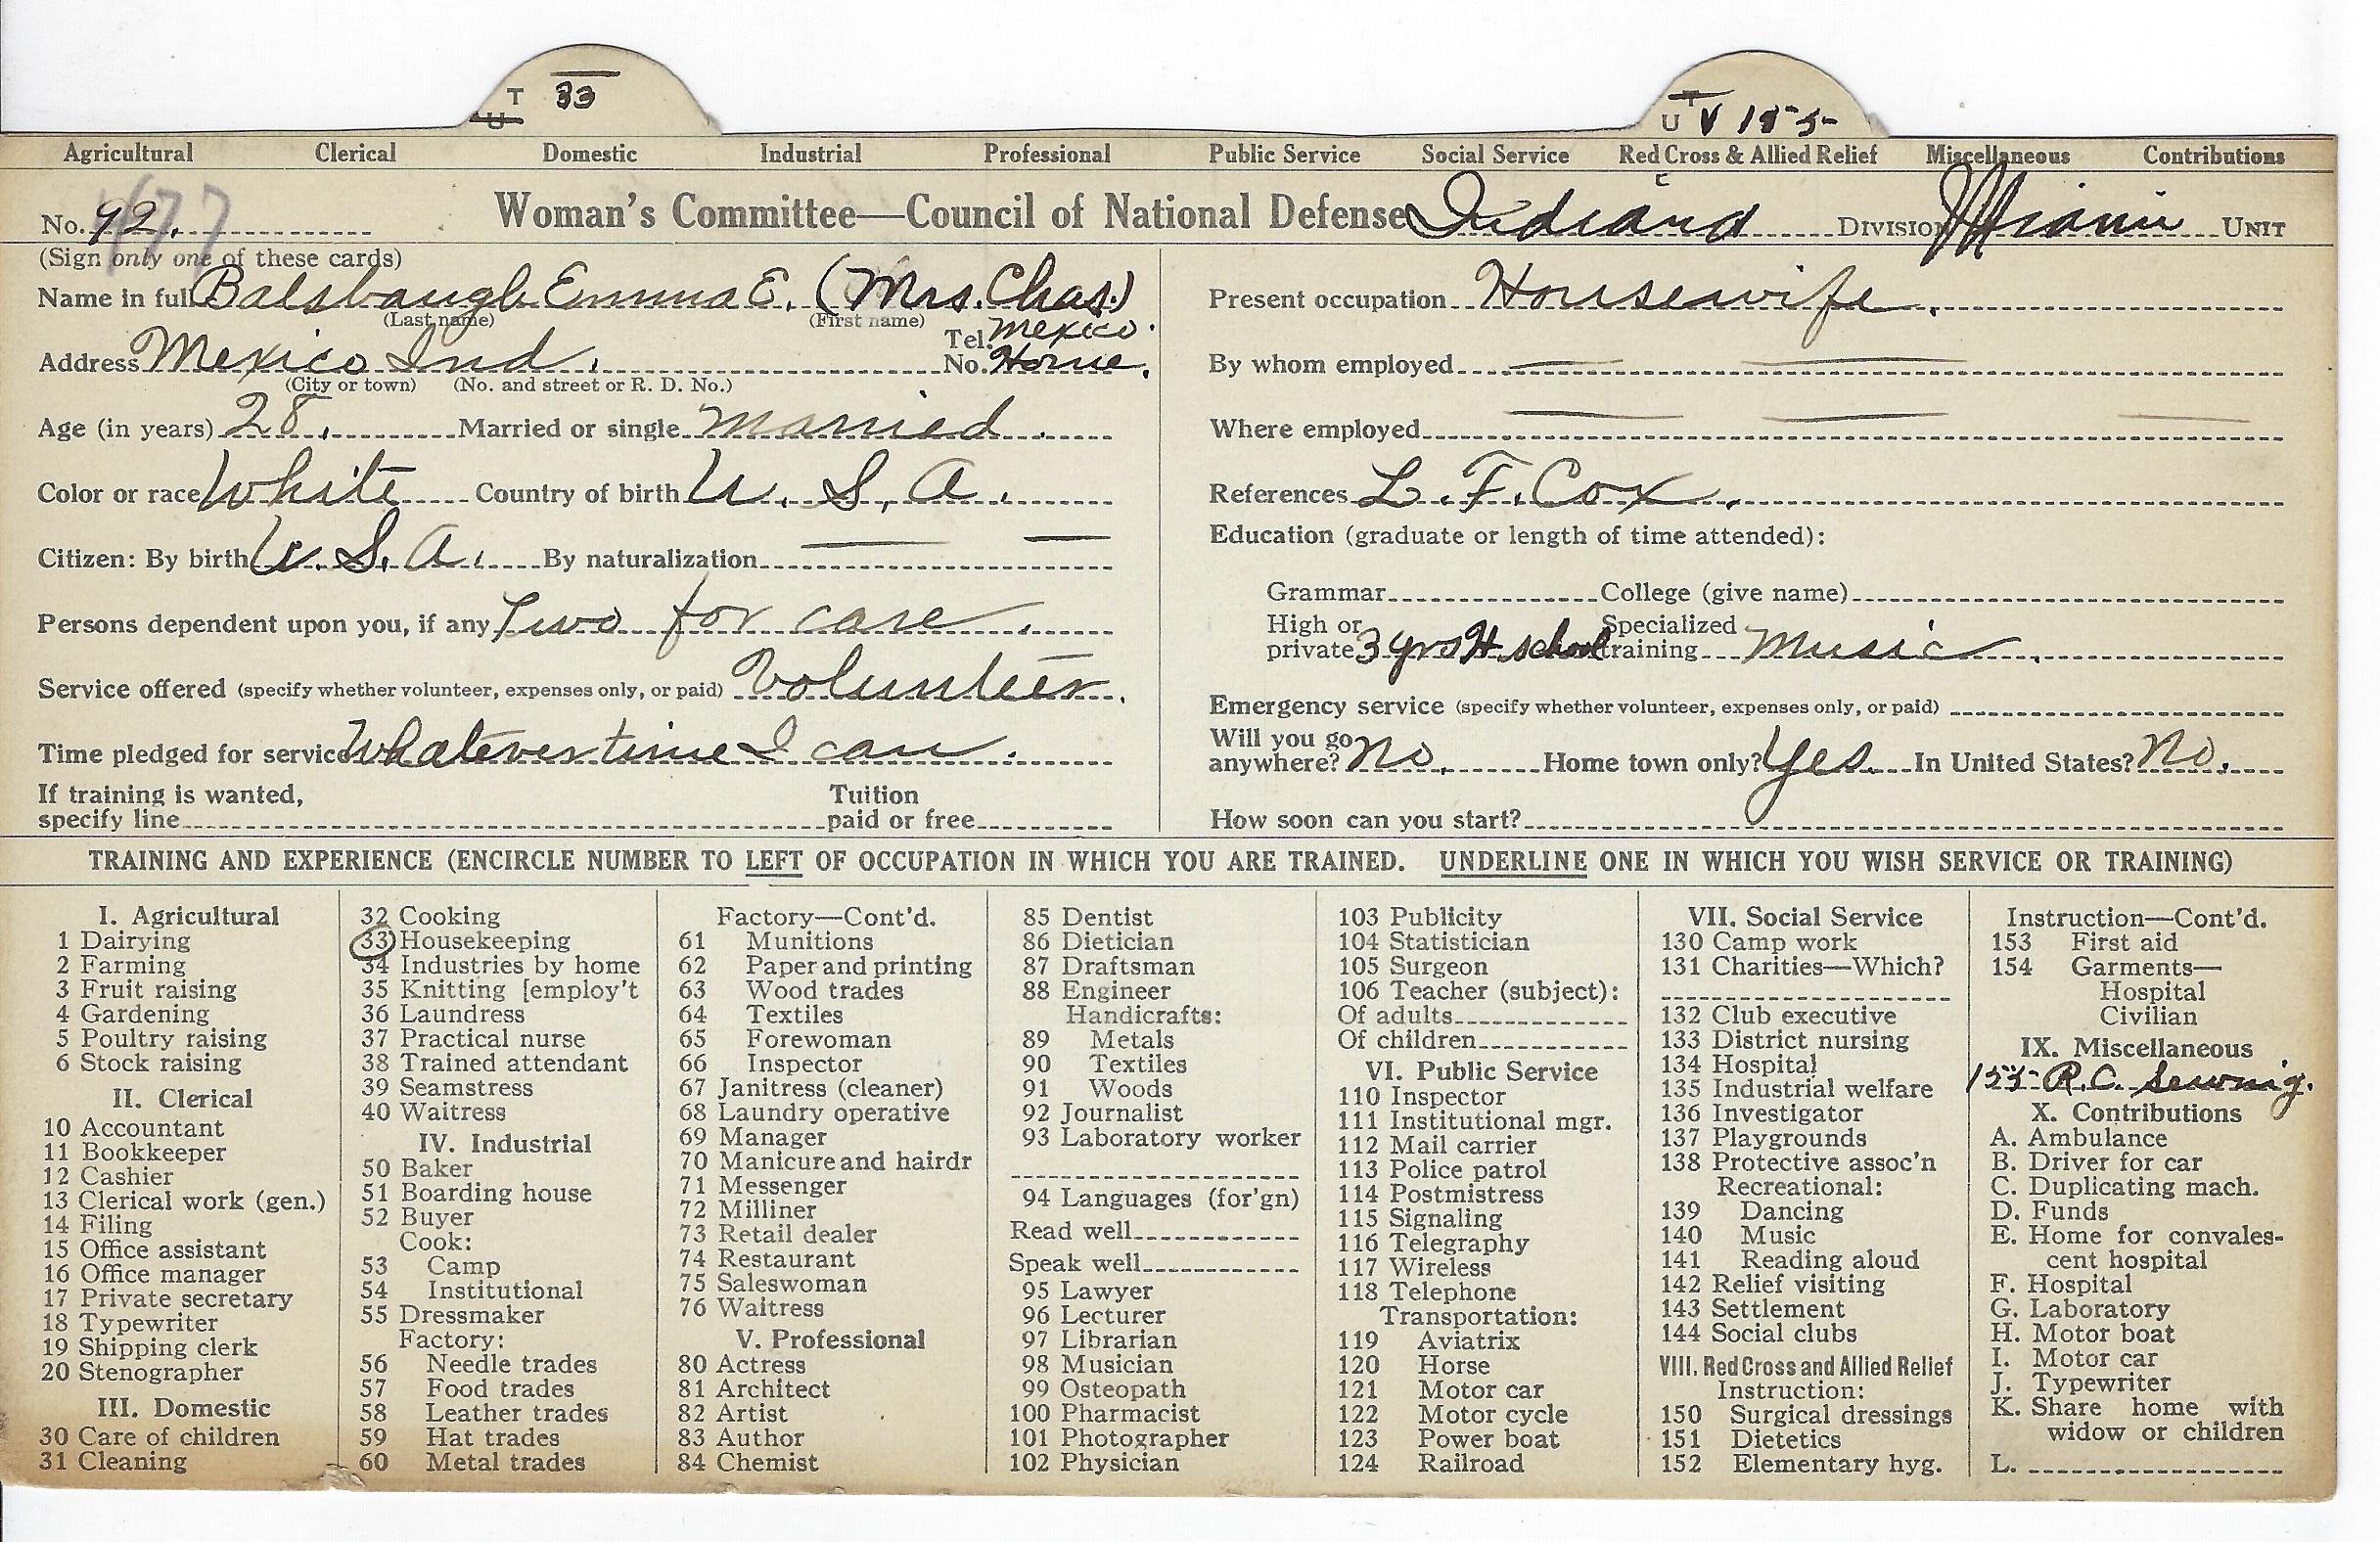 T 33
U
T
U V 155
Agricultural Clerical Domestic Industrial Professional Public Service Social Service Red Cross & Allied Relief Miscellaneous Contributions
No. 92. 477 Woman's Committee—Council of National Defense Indiana Division Miami Unit
(Sign only one of these cards)
Name in full Balsbaugh Emma E. (Mrs. Chas.)
(Last name) (First name)
Address Mexico Ind. Tel. No. Mexico Home.
(City or town) (No. and street or R. D. No.)
Age (in years) 28. Married or single Married.
Color or race White Country of birth U. S. A.
Citizen: By birth U. S. A. By naturalization
Persons dependent upon you, if any Two for care.
Service offered (specify whether volunteer, expenses only, or paid) Volunteer.
Time pledged for service Whatever time I can.
If training is wanted, specify line Tuition paid or free
Present occupation Housewife.
By whom employed
Where employed
References L. F. Cox.
Education (graduate or length of time attended):
Grammar College (give name)
High or private 3 yrs H school Specialized training Music.
Emergency service (specify whether volunteer, expenses only, or paid)
Will you go anywhere? No. Home town only? Yes. In United States? No.
How soon can you start?
TRAINING AND EXPERIENCE (ENCIRCLE NUMBER TO LEFT OF OCCUPATION IN WHICH YOU ARE TRAINED. UNDERLINE ONE IN WHICH YOU WISH SERVICE OR TRAINING)
I. Agricultural
1 Dairying
2 Farming
3 Fruit raising
4 Gardening
5 Poultry raising
6 Stock raising
II. Clerical
10 Accountant
11 Bookkeeper
12 Cashier
13 Clerical work (gen.)
14 Filing
15 Office assistant
16 Office manager
17 Private secretary
18 Typewriter
19 Shipping clerk
20 Stenographer
III. Domestic
30 Care of children
31 Cleaning
32 Cooking
33 Housekeeping
34 Industries by home
35 Knitting [employ't
36 Laundress
37 Practical nurse
38 Trained attendant
39 Seamstress
40 Waitress
IV. Industrial
50 Baker
51 Boarding house
52 Buyer
Cook:
53 Camp
54 Institutional
55 Dressmaker
Factory:
56 Needle trades
57 Food trades
58 Leather trades
59 Hat trades
60 Metal trades
Factory—Cont'd.
61 Munitions
62 Paper and printing
63 Wood trades
64 Textiles
65 Forewoman
66 Inspector
67 Janitress (cleaner)
68 Laundry operative
69 Manager
70 Manicure and hairdr
71 Messenger
72 Milliner
73 Retail dealer
74 Restaurant
75 Saleswoman
76 Waitress
V. Professional
80 Actress
81 Architect
82 Artist
83 Author
84 Chemist
85 Dentist
86 Dietician
87 Draftsman
88 Engineer
Handicrafts:
89 Metals
90 Textiles
91 Woods
92 Journalist
93 Laboratory worker
94 Languages (for'gn)
Read well
Speak well
95 Lawyer
96 Lecturer
97 Librarian
98 Musician
99 Osteopath
100 Pharmacist
101 Photographer
102 Physician
103 Publicity
104 Statistician
105 Surgeon
106 Teacher (subject):
Of adults
Of children
VI. Public Service
110 Inspector
111 Institutional mgr.
112 Mail carrier
113 Police patrol
114 Postmistress
115 Signaling
116 Telegraphy
117 Wireless
118 Telephone
Transportation:
119 Aviatrix
120 Horse
121 Motor car
122 Motor cycle
123 Power boat
124 Railroad
VII. Social Service
130 Camp work
131 Charities—Which?
132 Club executive
133 District nursing
134 Hospital
135 Industrial welfare
136 Investigator
137 Playgrounds
138 Protective assoc'n
Recreational:
139 Dancing
140 Music
141 Reading aloud
142 Relief visiting
143 Settlement
144 Social clubs
VIII. Red Cross and Allied Relief
Instruction:
150 Surgical dressings
151 Dietetics
152 Elementary hyg.
Instruction—Cont'd.
153 First aid
154 Garments—
Hospital
Civilian
IX. Miscellaneous
155 R.C. Sewing.
X. Contributions
A. Ambulance
B. Driver for car
C. Duplicating mach.
D. Funds
E. Home for convales-
cent hospital
F. Hospital
G. Laboratory
H. Motor boat
I. Motor car
J. Typewriter
K. Share home with
widow or children
L.